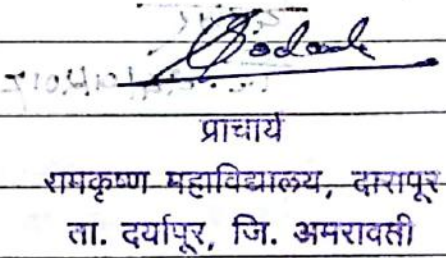 प्राचार्य
रामकृष्ण महाविद्यालय, दारापूर
ता. दर्यापूर, जि. अमरावती